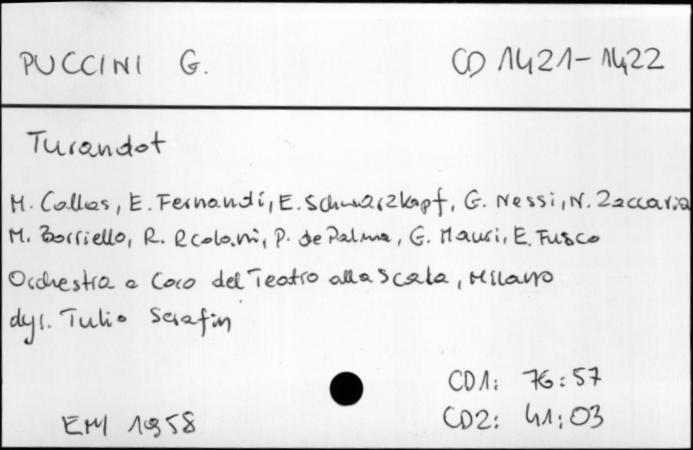 PUCCINI G. CD 1421-1422
Turandot
M. Callas, E. Fernandi, E. Schwarzkopf, G. Nessi, N. Zaccaria
M. Borriello, R. Rcolani, P. de Palma, G. Mauri, E. Fusco
Orchestra e Coro del Teatro alla Scala, Milano
dyr. Tulio Serafin
CD1: 76:57
EMI 1958 CD2: 41:03